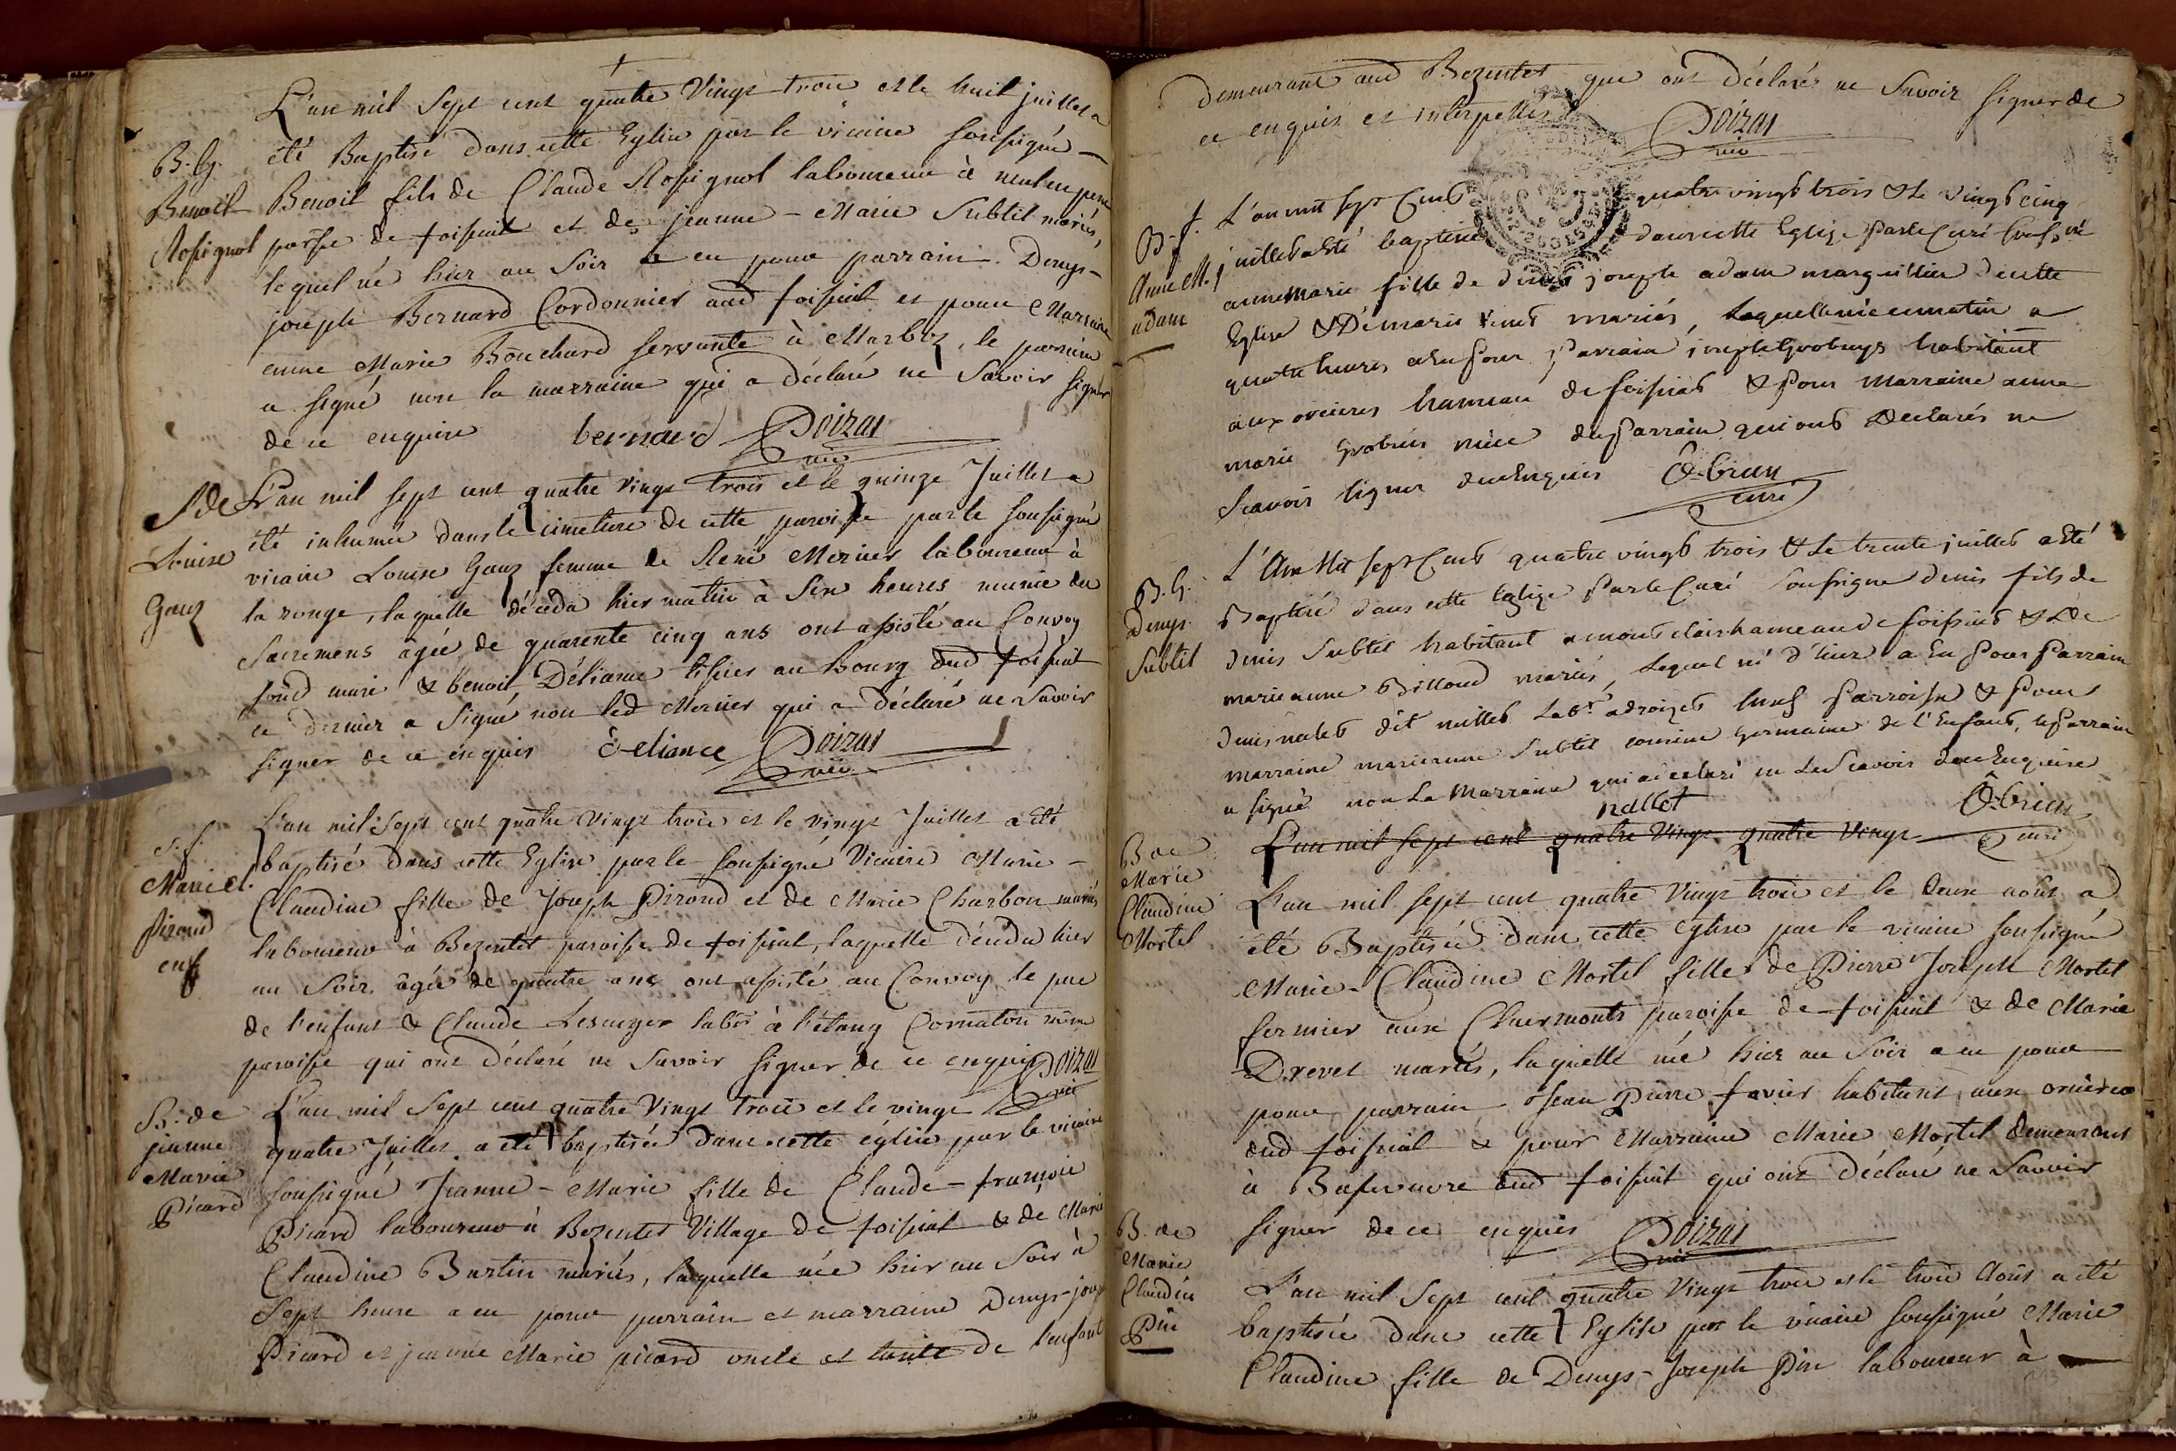 L'an mil Sept cent quatre Vingt trois et le huit juillet a
B. G.
été Baptisé dans cette Eglise par le vicaire soussigné
Benoit
Benoit fils de Claude Rossignol laboureur à
Rossignol
parsse de foissiat et de jeanne - Marie Subtil mariés,
lequel né hier au Soir a eu pour parrain Denys-
joseph Bernard Cordonnier aud foissiat et pour Marraine
Marie Bouchard servante à Marboz, le parrain
a signé non la marraine qui a déclaré ne Savoir signer
de ce enquise bernard Doizat
vic
S de
L'an mil sept cent quatre vingt trois et le quinze Juillet a
été inhumée dans le cimetiere de cette paroisse par le soussigné
Louise
vicaire Louise Gauz femme de René Mernier laboureur à
Gauz
la ronge, laquelle décéda hier matin à Six heures munie des
Sacremens agée de quarente cinq ans ont assisté au Convoy
sond mari & benoit Déliance tissier au Bourg dud foissiat
ce dernier a Signé non led Mernier qui a déclaré ne Savoir
signer de ce enquis deliance Doizat
vic
S. f.
L'an mil Sept cent quatre Vingt trois et le vingt Juillet a été
baptisé dans cette Eglise par le soussigné Vicaire Marie-
Marie Cl.
Claudine fille de Joseph Piroud et de Marie Charbon mariés
Piroud
laboureur à Bezentet paroisse de foissiat, laquelle décéda hier
enf
au Soir agée de quatre ans ont assisté au Convoy le pere
de l'enfant & Claude Lesarger labr à l'étang Cornaton même
paroisse qui ont déclaré ne Savoir signer de ce enquis Doizat
vic
B. de
L'an mil Sept cent quatre Vingt trois et le vingt
jeanne
quatre Juillet a été baptisée dans cette église par le vicaire
Marie
soussigné Jeanne - Marie fille de Claude - françois
Picard
Picard laboureur à Bezentet Village de foissiat & de Marie
Claudine Burtin mariés, laquelle née hier au Soir à
Sept heure a eu pour parrain et marraine Denys-joseph
Picard et jeanne Marie picard oncle et tante de l'enfant
demeurant aud Bezentet que ont déclarés ne Savoir signer de
ce enquis et interpellés Doizat
vic
B. f.
L'an mil sept Cent quatre vingt trois & le vingt cinq
juillet a été baptisée dans cette Eglise par le Curé soussigné
Anne M.
anne Marie fille de denis joseph adam marguillier de cette
adam
Eglise & De marie mariés, laquelle née ce matin a
quatre heures a eu pour parrain joseph habitant
aux orcieres hameau de foissiat & pour marraine anne
marie niece du parrain qui ont déclarés ne
scavoir signer de ce enquis O-brien
curé
L'An Mil sept Cent quatre vingt trois & le trente juillet a été
B. G.
Baptisé dans cette Eglise par le Curé soussigné denis fils de
Denys
denis Subtil habitant a mont clair hameau de foissiat & de
Subtil
marie anne Billoud mariés, lequel né d'hier a eu pour parrain
denis nallet dit millet labr a drozet susd parroisse & pour
marraine marieanne Subtil cousine germaine de l'Enfant, le parrain
a signé non la marraine qui a declaré ne le scavoir de ce enquise
nallet O-brien
curé
L'an mil sept cent quatre Vingt quatre Vingt
B de
Marie
Claudine
Mortel
L'an mil sept cent quatre Vingt trois et le deux août a
été Baptisée dans cette église par le vicaire soussigné
Marie - Claudine Mortel fille de Pierre Joseph Mortel
fermier aux Cluermonts paroisse de foissiat & de Marie
Drevet mariés, laquelle née hier au Soir a eu pour
pour parrain Jean Pierre favier habitant aux orcieres
dud foissiat & pour Marraine Marie Mortel demeurant
à aud foissiat qui ont déclaré ne Savoir
signer de ce enquis Doizat
vic
B. de
Marie
Claudine
Pin
L'an mil Sept cent quatre Vingt trois et le trois Août a été
baptisée dans cette Eglise par le vicaire soussigné Marie
Claudine fille de Denys - Joseph Pin laboureur à